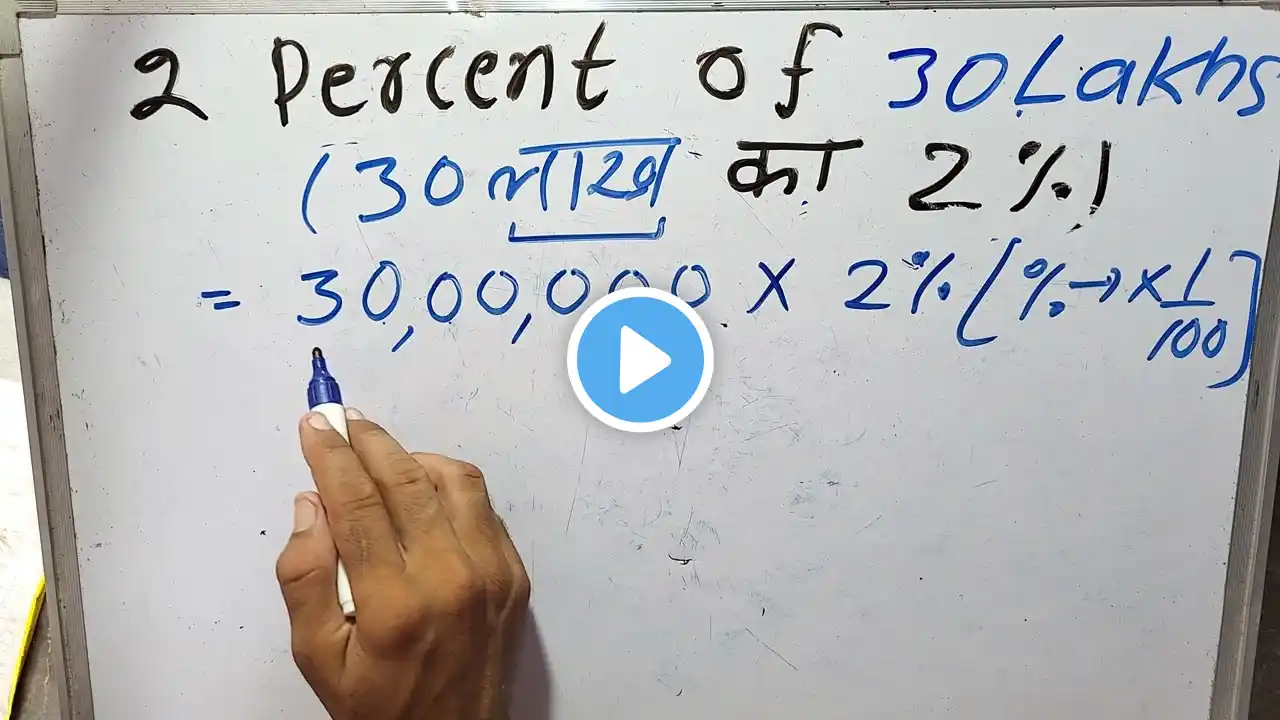 2 Percent of 30 Lakhs
(30 लाख का 2%)
= 30,00,000 × 2% [%→×1/100]